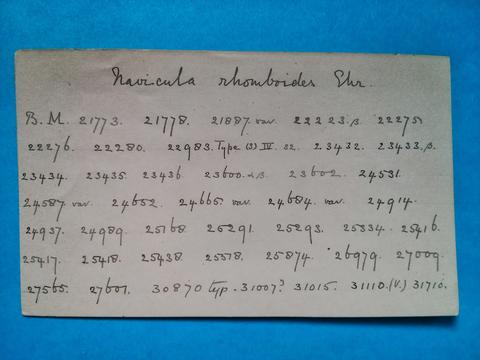 Navicula rhomboides Ehr.
B.M. 21773. 21778. 21887 var. 22223.β. 22275.
22276. 22280. 22983. Type (3) IV. 22. 23432. 23433.β.
23434. 23435. 23436. 23600.αβ. 23602. 24531.
24587 var. 24652. 24665 var. 24684. var. 24914.
24937. 24989. 25168. 25291. 25293. 25334. 25416.
25417. 25418. 25438. 25578. 25874. 26979. 27009.
27565. 27601. 30870 typ. 31007? 31015. 31110.(V.) 31710.